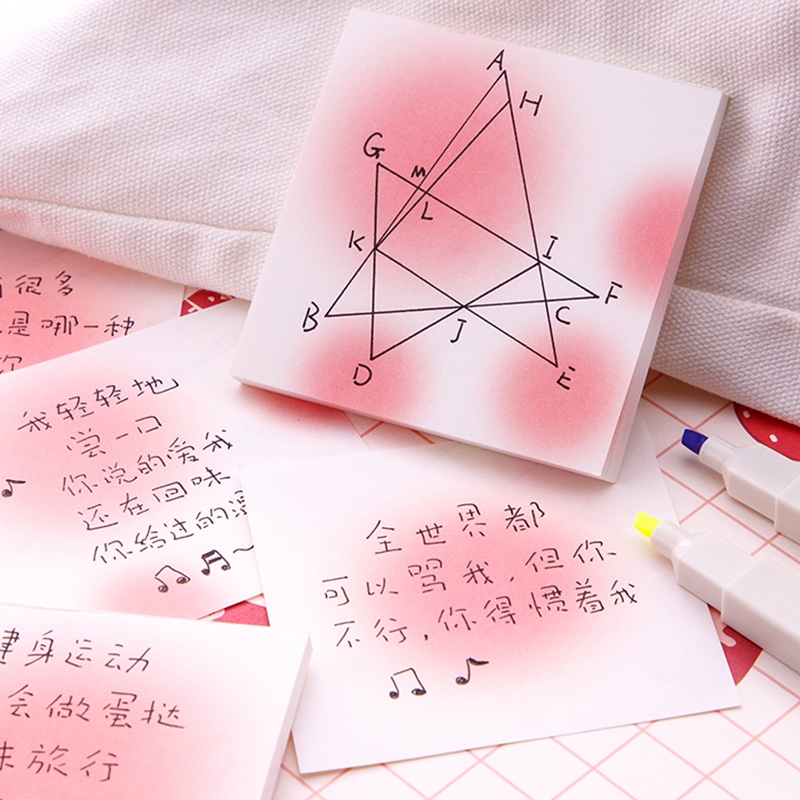 A
H
G
M
L
K
I
F
B
J
C
D
E
很多
是哪一种
你
我轻轻地
尝一口
你说的爱我
还在回味
你给过的
全世界都
可以骂我，但你
不行，你得惯着我
健身运动
会做蛋挞
旅行